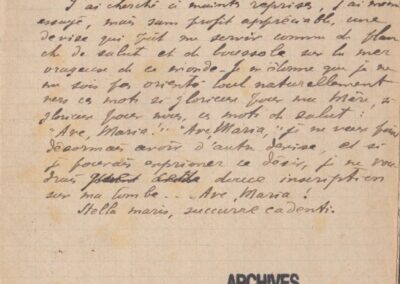 J'ai cherché à maintes reprises, j'ai même
essayé, mais sans profit appréciable, une
devise qui pût me servir comme de plan
che de salut et de boussole sur la mer
orageuse de ce monde. Je m'étonne que je ne
me sois pas orienté tout naturellement
vers ces mots si glorieux pour ma Mère, si
glorieux pour nous, ces mots de salut :
"Ave, Maria!" "Ave, Maria," je ne veux pas
désormais avoir d'autre devise, et si
je pouvais exprimer ce désir, je ne vou
drais douce inscription
sur ma tombe... Ave, Maria!
Stella maris, succurre cadenti.
ARCHIVES